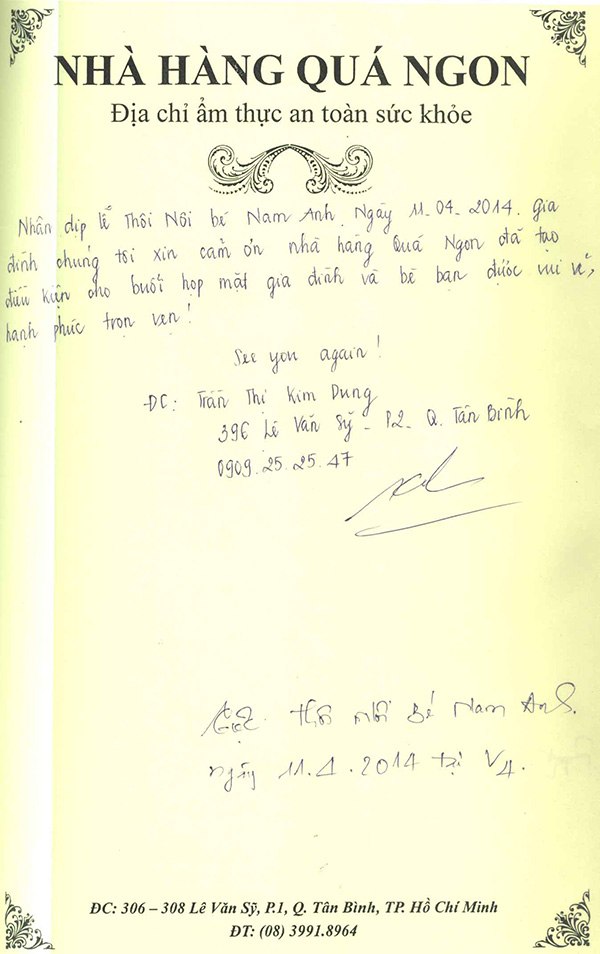 NHÀ HÀNG QUÁ NGON
Địa chỉ ẩm thực an toàn sức khỏe
Nhân dịp lễ Thôi Nôi bé Nam Anh. Ngày 11-04-2014. Gia
đình chúng tôi xin cảm ơn nhà hàng Quá Ngon đã tạo
điều kiện cho buổi họp mặt gia đình và bè bạn được vui vẻ,
hạnh phúc trọn vẹn!
See you again!
ĐC: Trần Thị Kim Dung
396 Lê Văn Sỹ - P2 - Q. Tân Bình
0909.25.25.47
Thôi Nôi Bé Nam Anh.
ngày 11.4.2014 tại V4.
ĐC: 306 – 308 Lê Văn Sỹ, P.1, Q. Tân Bình, TP. Hồ Chí Minh
ĐT: (08) 3991.8964